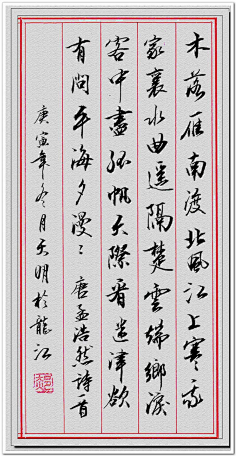 木落雁南渡北風江上寒我
家襄水曲遥隔楚雲端鄉淚
客中盡孤帆天際看迷津欲
有問平海夕漫〻 唐孟浩然詩一首
庚寅年冬月天明於龍江